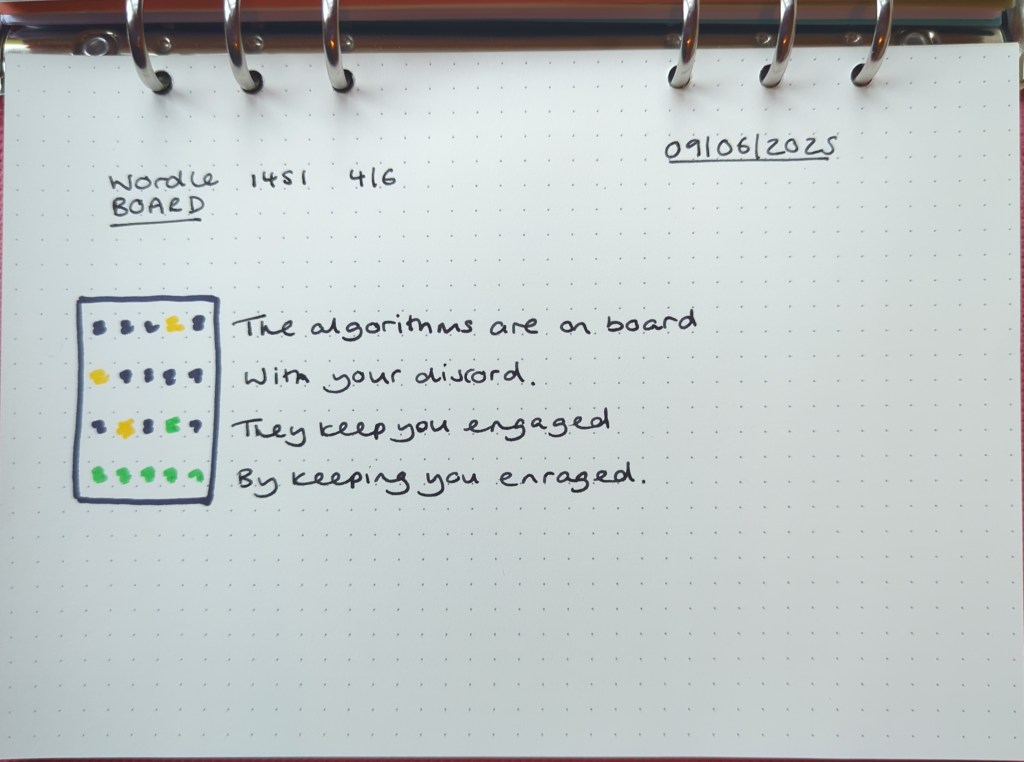 09/06/2025
Wordle 1451 4/6
BOARD
The algorithms are on board
With your discord.
They keep you engaged
By keeping you enraged.